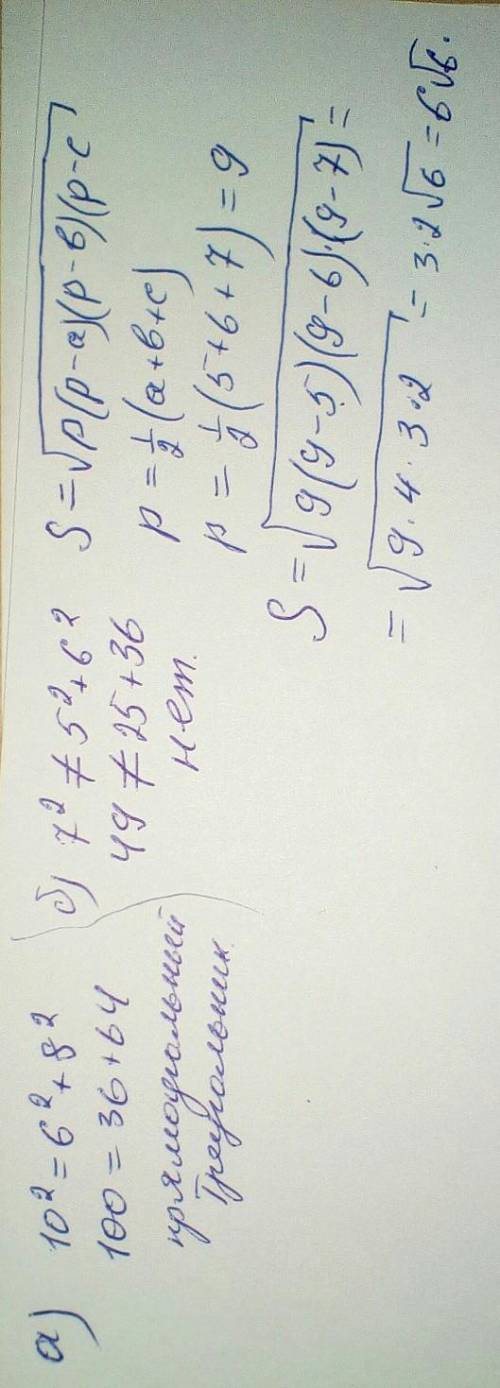 а) 10² = 6² + 8²
100 = 36 + 64
прямоугольный
треугольник.
б) 7² ≠ 5² + 6²
49 ≠ 25 + 36
нет.
S = √p(p-a)(p-в)(p-c
p = ½(a+в+c)
p = ½(5+6+7) = 9
S = √9(9-5)(9-6)·(9-7) =
= √9·4·3·2 = 3·2√6 = 6√6.